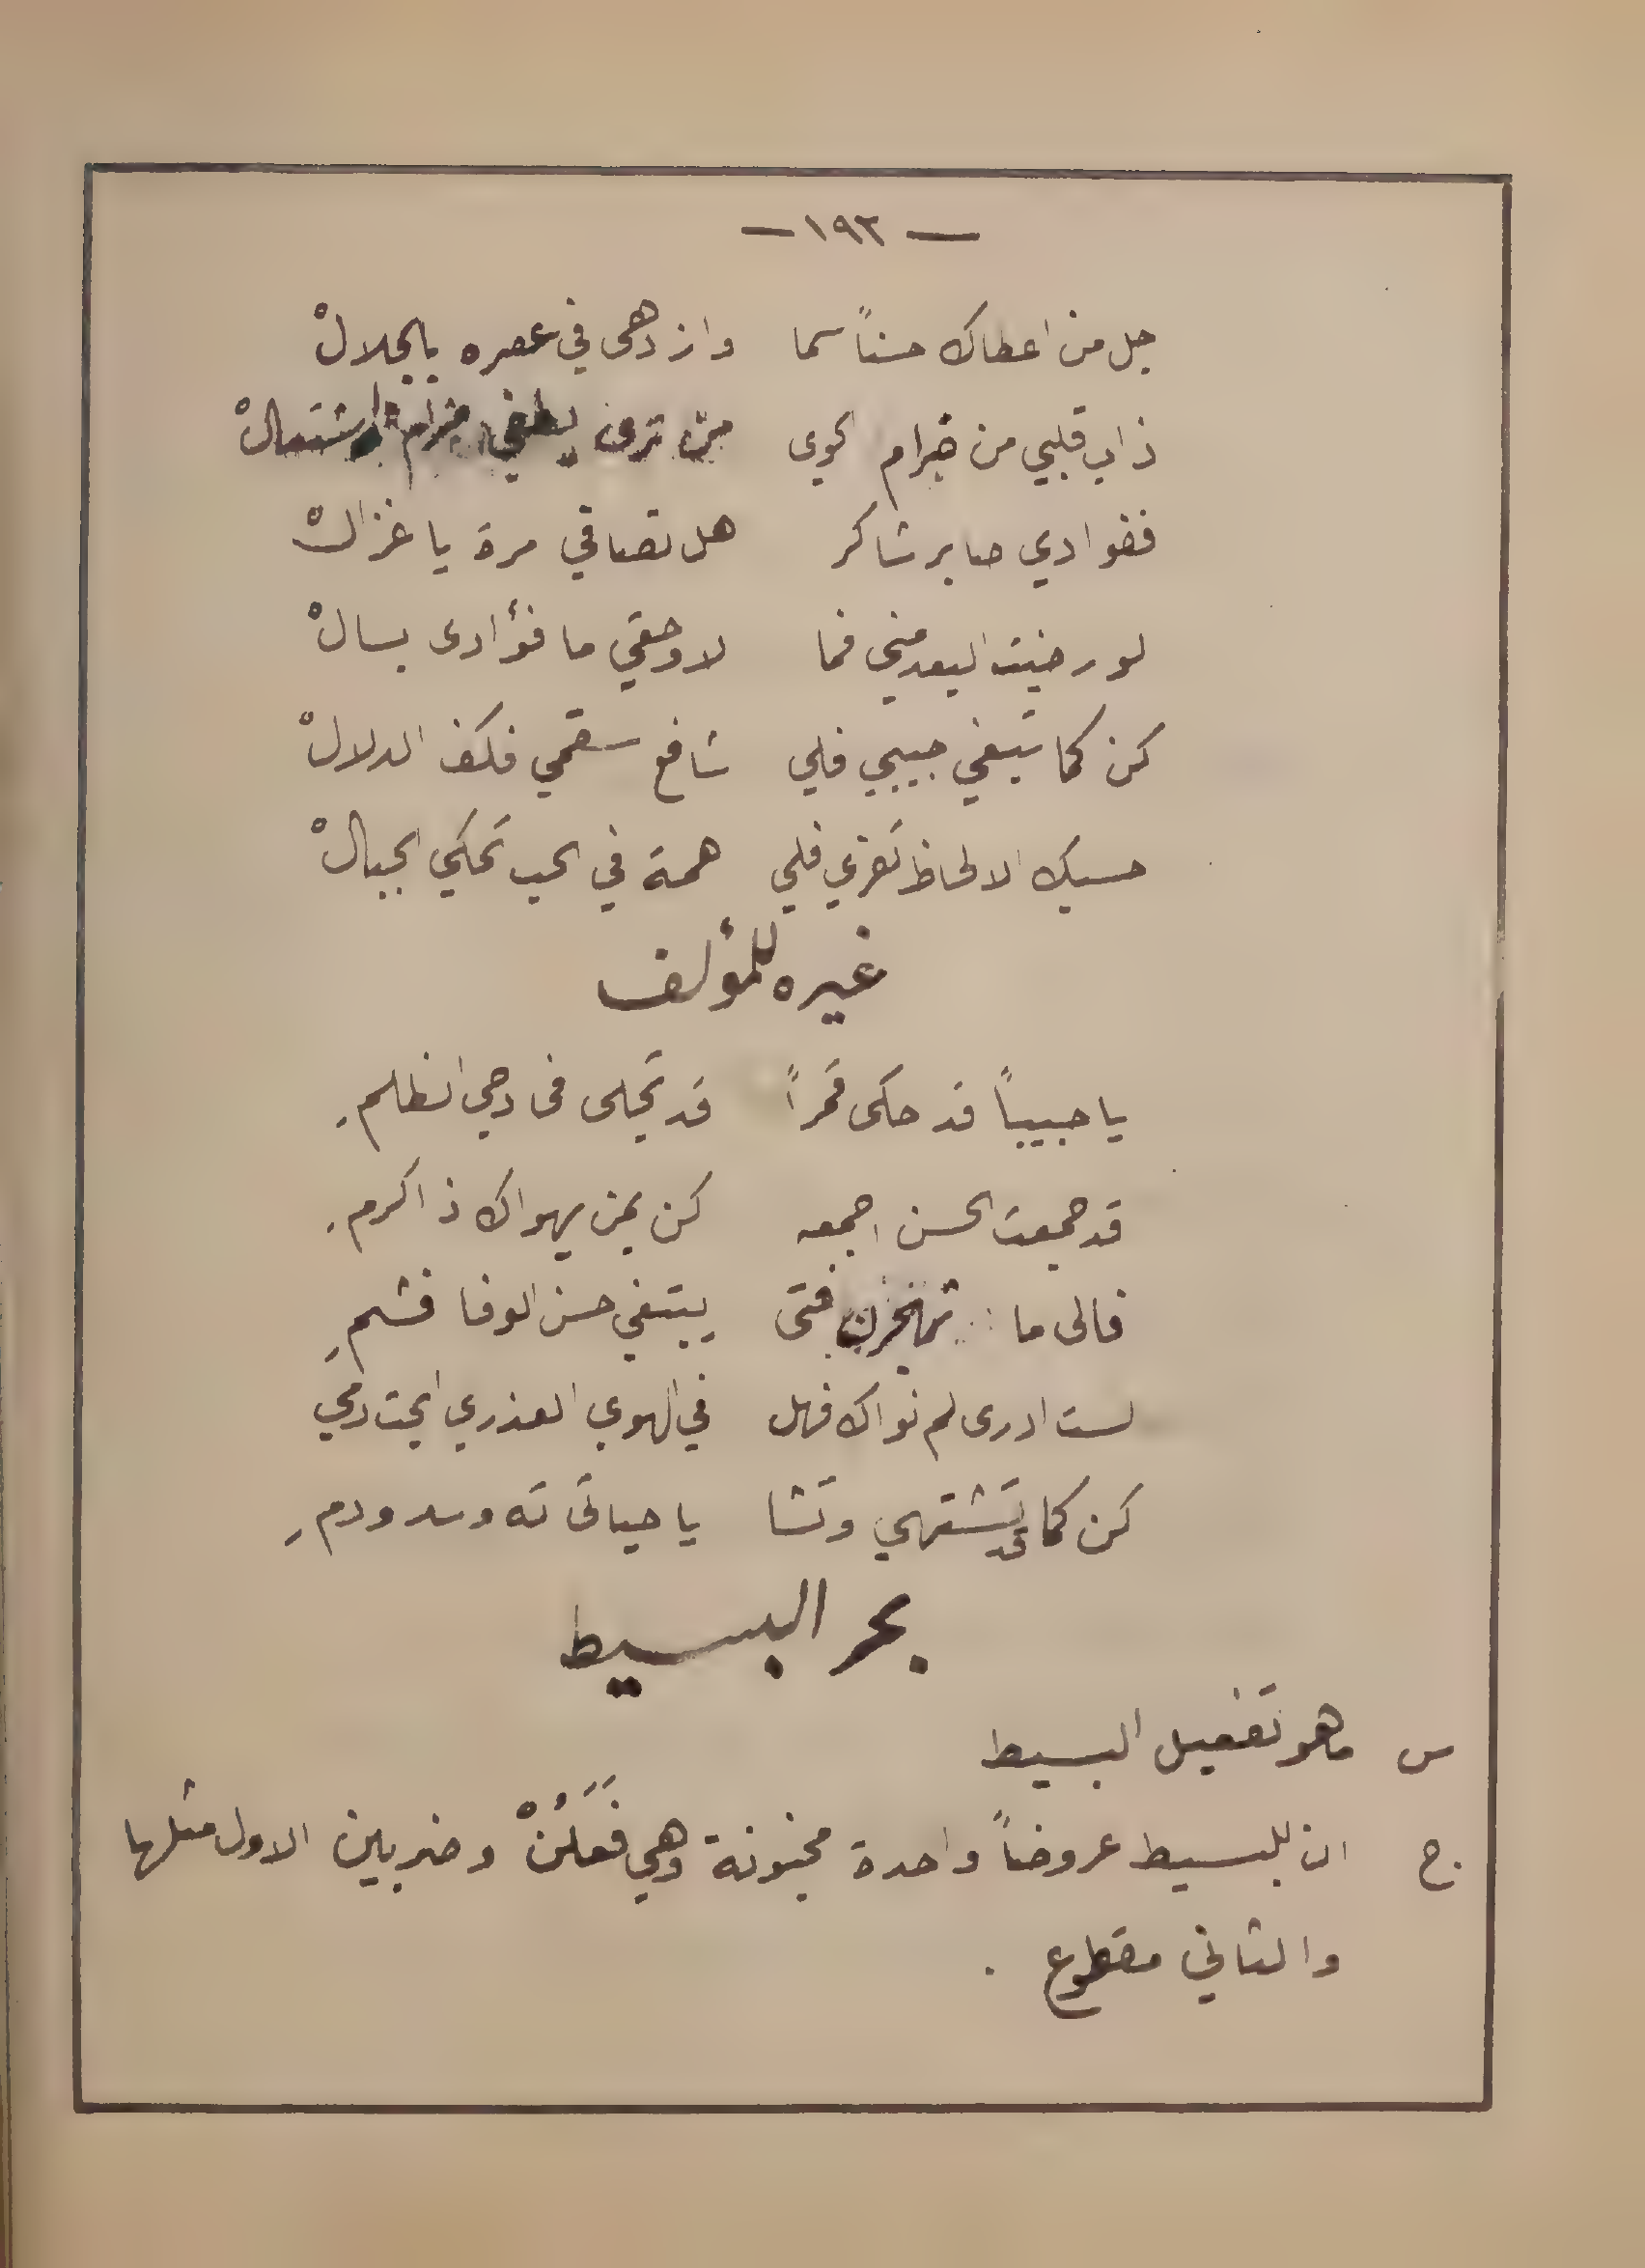 — ١٩٢ —
جل من اعطاك حسناً سما وازدهى في عصره بالجلالْ
ذاب قلبي من ضرام الجوى من ترى يطفي ضرام اشتعالْ
ففوادي صابر شاكر هل تصافي مرة يا غزالْ
لو رضيت البعد مني فما لا وحقي ما فؤادى بسالْ
كن كما تبغي حبيبي فلي شافع سقمي فكف الدلالْ
حسبك الالحاظ تغزي فلي همة في الحب تحكي الجبالْ
غيره للمؤلف
يا حبيباً قد حكى قمراً قد تجلى فى دجى الظلمِ
قد جمعت الحسن اجمعه كن بمن يهواك ذا كرمِ
فالى ما تهجرن فتى يبتغي حسن الوفا فشمِ
لست ادرى لم نواك فهل في الهوي العذري ابحت دمي
كن كما قد تشتهي وتشا يا حياتى ته وسد ودمِ
بحر البسيط
س ما هو تفعيل البسيط
ج ان للبسيط عروضاً واحدة مخبونة وهي فَعَلُنْ وضربين الاول مثلها
والثاني مقطوع .